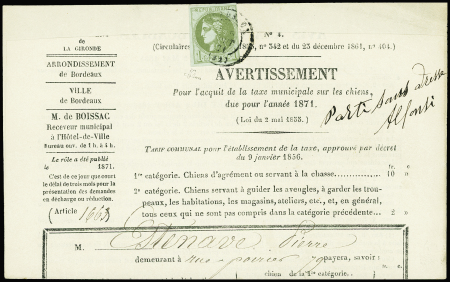 de
LA GIRONDE
ARRONDISSEMENT
de Bordeaux
VILLE
de Bordeaux
M. de BOISSAC
Receveur municipal
à l'Hôtel-de-Ville
Bureau ouv. de 1 h. à 4 h.
Le rôle a été publié
le 1871.
C'est de ce jour que court
le délai de trois mois pour la
présentation des demandes
en décharge ou réduction.
(Article 1663)
N° 4.
(Circulaires n° 342 et du 23 décembre 1861, n° 404.)
AVERTISSEMENT
Pour l'acquit de la taxe municipale sur les chiens,
due pour l'année 1871.
(Loi du 2 mai 1855.)
Parti sans adresse
TARIF COMMUNAL pour l'établissement de la taxe, approuvé par décret
du 9 janvier 1856.
fr. c.
1re catégorie. Chiens d'agrément ou servant à la chasse 10 »
2e catégorie. Chiens servant à guider les aveugles, à garder les trou-
peaux, les habitations, les magasins, ateliers, etc., et, en général,
tous ceux qui ne sont pas compris dans la catégorie précédente 2 »
M. Pierre
demeurant à rue payera, savoir :
chien de la 1re catégorie.